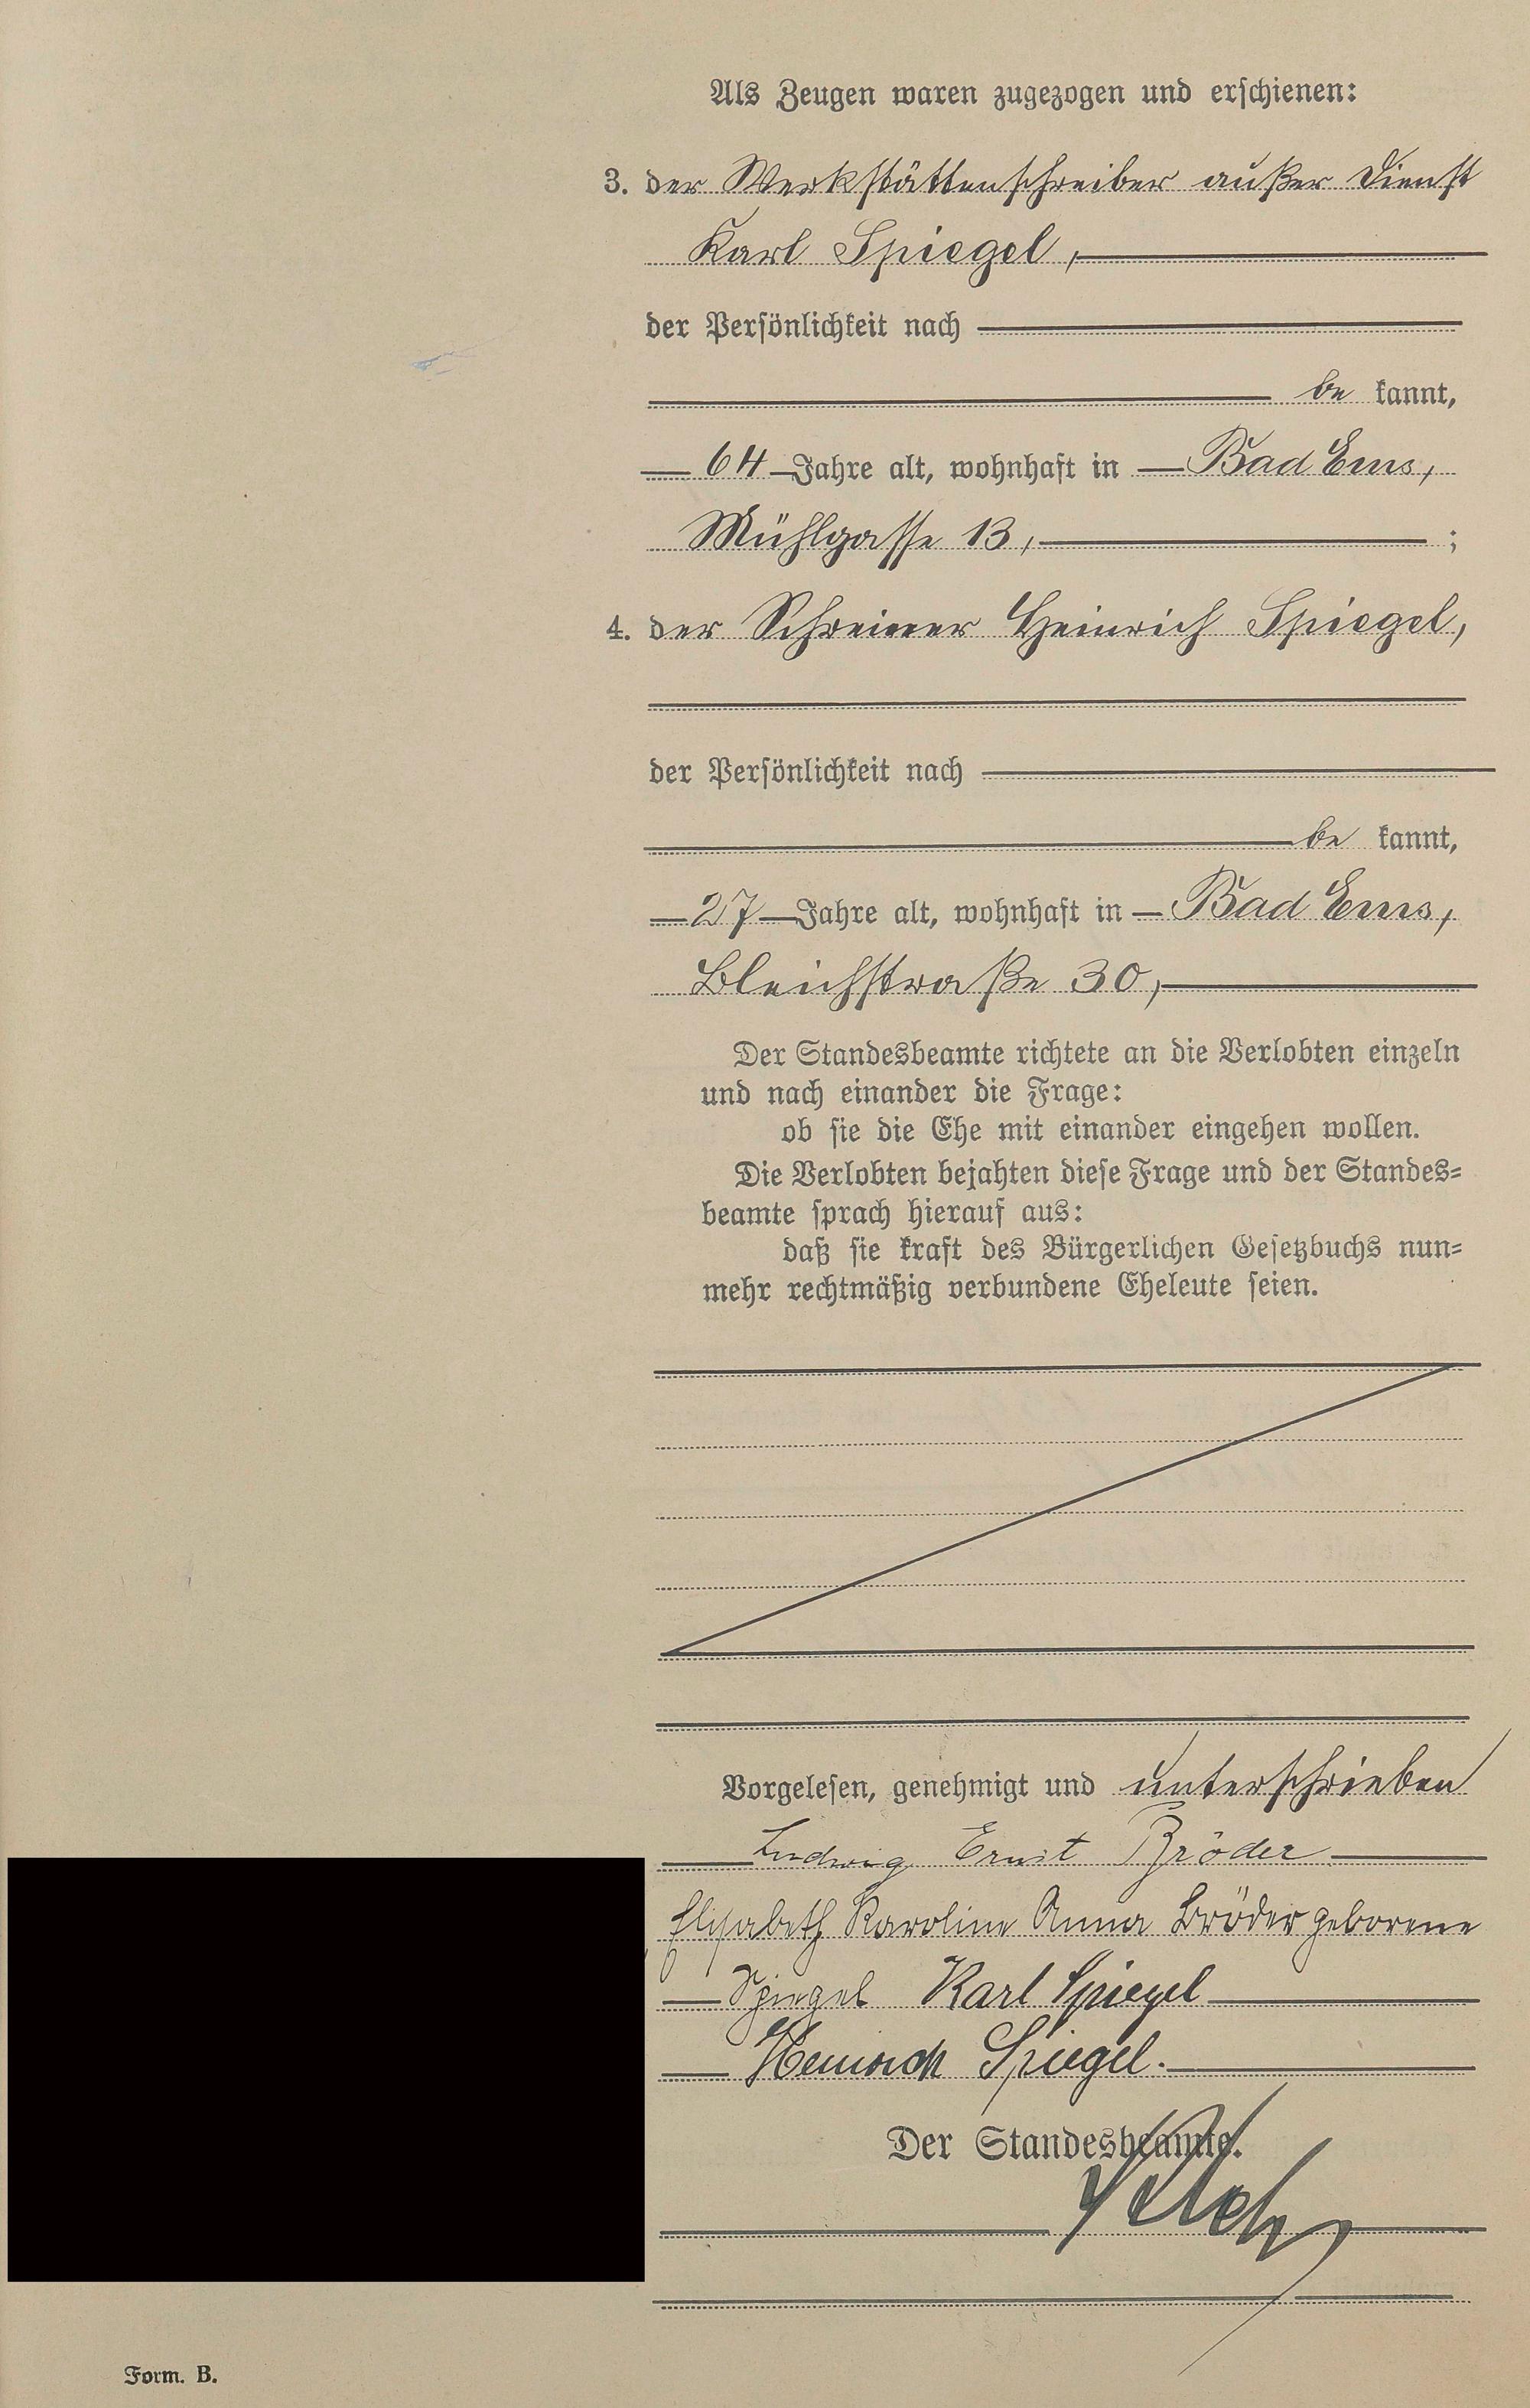 Als Zeugen waren zugezogen und erschienen:
3. der Werkstättenschreiber außer Dienst
Karl Spiegel,
der Persönlichkeit nach
be kannt,
64 Jahre alt, wohnhaft in Bad Ems,
Mühlgasse 13, ;
4. der Schreiner Heinrich Spiegel,
der Persönlichkeit nach
be kannt,
27 Jahre alt, wohnhaft in Bad Ems,
Bleichstraße 30,
Der Standesbeamte richtete an die Verlobten einzeln
und nach einander die Frage:
ob sie die Ehe mit einander eingehen wollen.
Die Verlobten bejahten diese Frage und der Standes-
beamte sprach hierauf aus:
daß sie kraft des Bürgerlichen Gesetzbuchs nun-
mehr rechtmäßig verbundene Eheleute seien.
Vorgelesen, genehmigt und unterschrieben
Ludwig Ernst Bröder
Elisabeth Karoline Anna Bröder geborene
Spiegel Karl Spiegel
Heinrich Spiegel.
Der Standesbeamte.
Form. B.